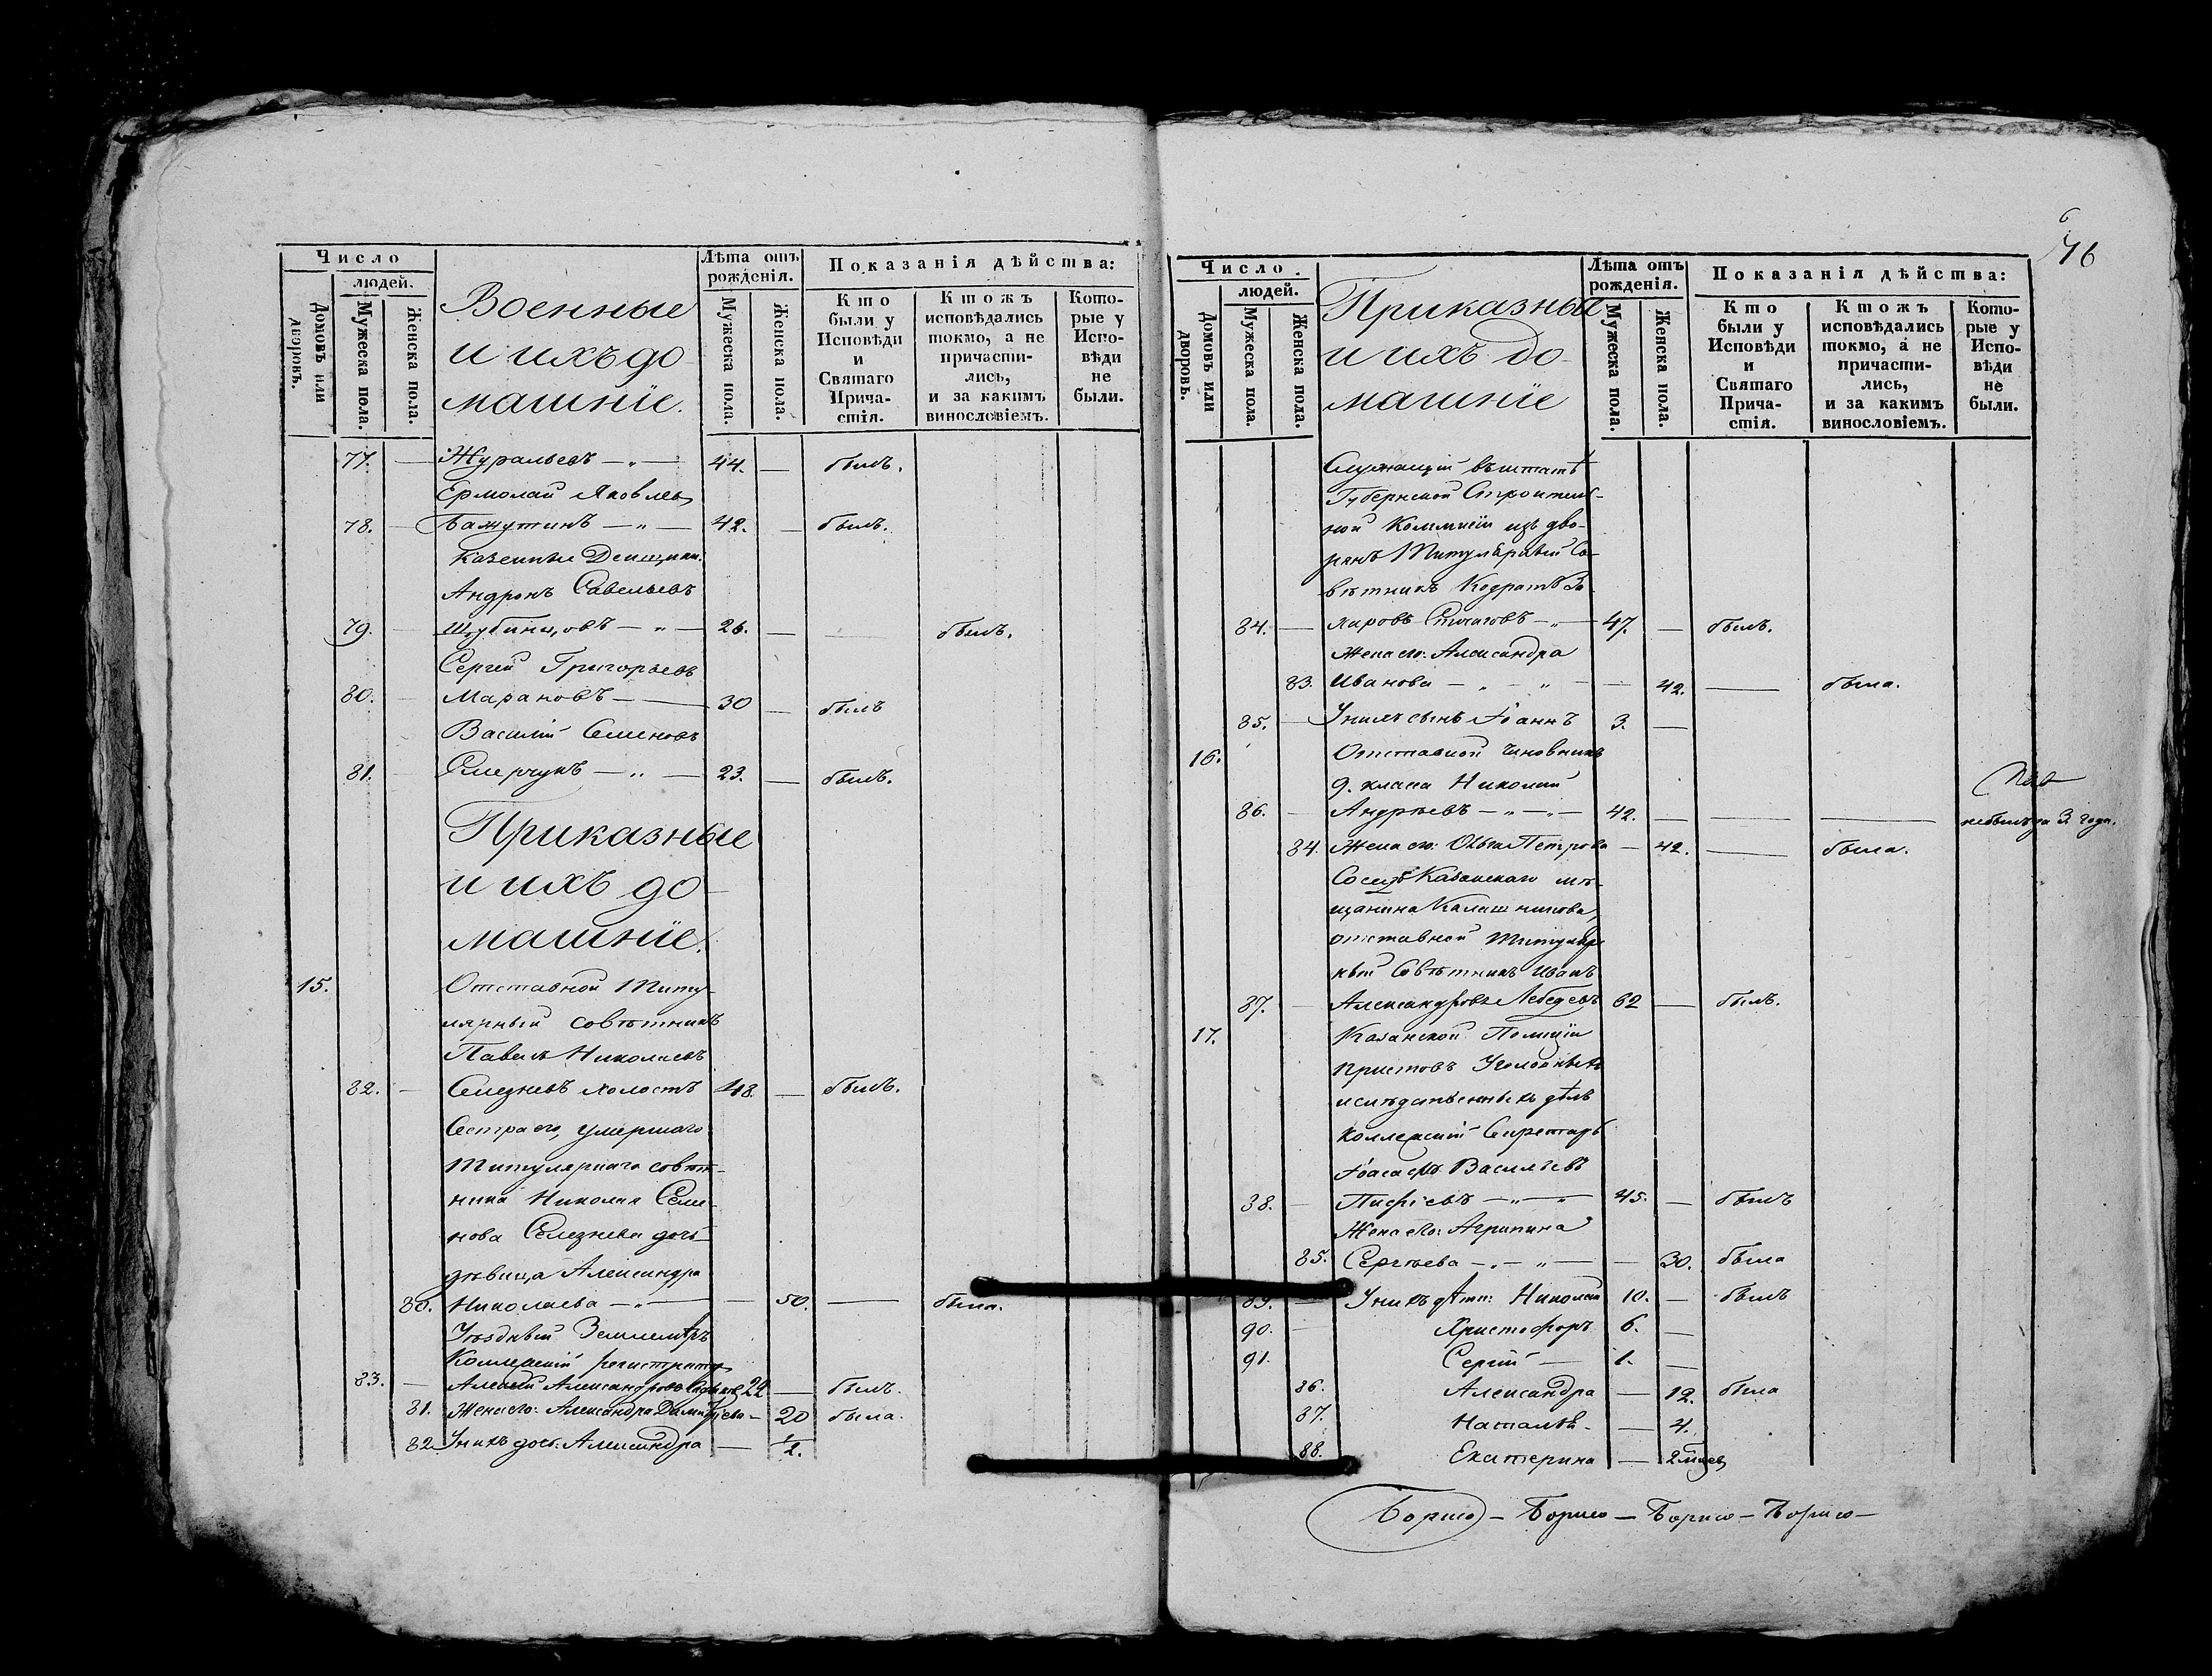 Число
людей.
Домовъ или дворовъ.
Мужеска пола.
Женска пола.
Военные
и ихъ до-
машніе.
Лѣта отъ
рожденія.
Мужеска пола.
Женска пола.
Показанія дѣйства:
Кто
были у
Исповѣди
и
Святаго
Прича-
стія.
Ктожъ
исповѣдались
токмо, а не
причасти-
лись,
и за какимъ
винословіемъ.
Кото-
рые у
Испо-
вѣди
не
были.
77. — Журавлевъ — „ — 44. — былъ.
Ермолай Яковлевъ
78. — Бажутинъ — „ — 42. — былъ.
Казенные Денщики.
Андронъ Савельевъ
79. — — „ — 26. — — былъ.
Сергей Григорьевъ
80. — Марановъ — 30 — былъ
Василій Семеновъ
81. — Смерчукъ — „ — 23. — былъ.
Приказные
и ихъ до-
машніе.
15. Отставной Титу-
лярный совѣтникъ
Павелъ Николаевъ
82. — Селезневъ холостъ 48. — былъ.
Сестра его, умершаго
Титулярнаго совѣт-
ника Николая Семе-
нова Селезнева дочь
дѣвица Александра
80. Николаева — „ — — 50. — была.
Уѣздный Землемѣръ
Коллежскій регистраторъ
83. — Алексѣй Александровъ 22 — былъ.
81. Жена его: Александра Димитріева — 20 была.
82 У нихъ дочь: Александра — 1/2.
6
76
Число
людей.
Домовъ или дворовъ.
Мужеска пола.
Женска пола.
Приказные
и ихъ до-
машніе
Лѣта отъ
рожденія.
Мужеска пола.
Женска пола.
Показанія дѣйства:
Кто
были у
Исповѣди
и
Святаго
Прича-
стія.
Ктожъ
исповѣдались
токмо, а не
причасти-
лись,
и за какимъ
винословіемъ.
Кото-
рые у
Испо-
вѣди
не
были.
Служащій въ штатѣ
Губернской Строитель-
ной Коммисіи изъ дво-
рянъ Титулярный Со-
вѣтникъ Кодратъ За-
84. — харовъ — „ — 47. — былъ.
Жена его: Александра
83. Иванова — „ — „ — — 42. — была.
85. — У нихъ сынъ Іоаннъ 3. —
16. Отставной чиновникъ
9. класса Николай
86. — Андреевъ — „ — „ — 42. — — — не былъ за 3 года.
84. Жена его: Ольга Петрова — 42. — была.
Соседъ Казанскаго мѣ-
щанина Калашникова,
отставной Титуляр-
ный Совѣтникъ Иванъ
87. — Александровъ Лебедевъ 62 — былъ.
17. Казанской Полиціи
приставъ Уголовныхъ
и слѣдственныхъ дѣлъ
коллежскій Секретарь
Іоасафъ Васильевъ
88. — — „ — „ 45. — былъ
Жена его: Агрипина
85. Сергѣева — „ — „ — — 30. была
89. — У нихъ дѣти: Николай 10. — былъ
90. — Христофоръ 6. —
91. Сергій — 1. —
86. Александра — 12. была
87. Наталья — — 4.
88. Екатерина — 2 мѣсяц.